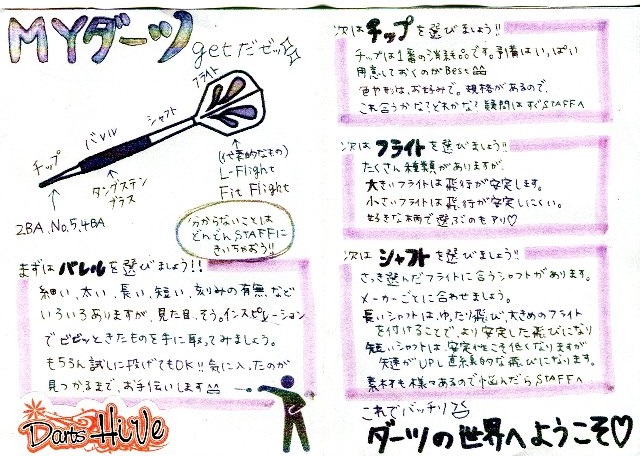 MYダーツ
getだゼッ☆
フライト
シャフト
バレル
チップ
タングステン
ブラス
2BA, No.5, 4BA
(代表的なもの)
L-Flight
Fit Flight
分からないことは
どんどんSTAFFに
きいちゃおう!!
まずはバレルを選びましょう!!
細い、太い、長い、短い、刻みの有無など
いろいろありますが、見た目。そう。インスピレーション
でビビッときたものを手に取ってみましょう。
もちろん試しに投げてもOK!!気に入ったのが
見つかるまで、お手伝いします
Darts HiVe
次はチップを選びましょう!!
チップは1番の消耗品です。予備はいっぱい
用意しておくのがBest
色や形は、お好みで。規格があるので、
これ合うかな?どれかな?疑問はすぐSTAFFへ
次はフライトを選びましょう!!
たくさん種類がありますが、
大きいフライトは飛行が安定します。
小さいフライトは飛行が安定しにくい。
好きな柄で選ぶのもアリ♡
次はシャフトを選びましょう!!
さっき選んだフライトに合うシャフトがあります。
メーカーごとに合わせましょう。
長いシャフトは、ゆったり飛び、大きめのフライト
を付けることで、より安定した飛びになり
短いシャフトは、安定性こそ低くなりますが
矢速がUPし直線的な飛びになります。
素材も様々あるので悩んだらSTAFFへ
これでバッチリ
ダーツの世界へようこそ♡